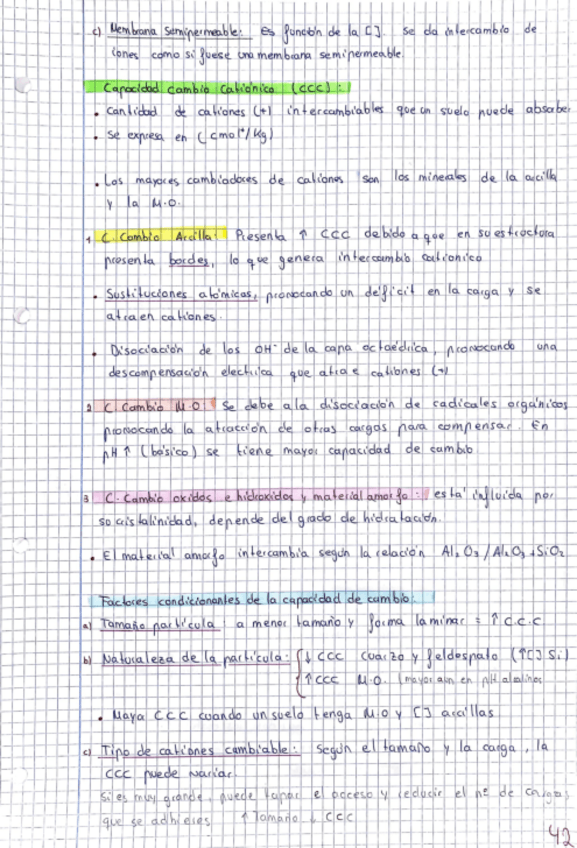 c) Membrana semipermeable: Es función de la []. se da intercambio de
iones como si fuese una membrana semipermeable.
Capacidad cambio catiónico (CCC):
• Cantidad de cationes (+) intercambiables que un suelo puede absorber
• Se expresa en (cmol⁺/Kg)
• Los mayores cambiadores de cationes son los minerales de la arcilla
y la M.O.
1 C. Cambio Arcilla: Presenta ↑ CCC debido a que en su estructura
presenta bordes, lo que genera intercambio cationico
• Sustituciones atómicas, provocando un déficit en la carga y se
atraen cationes.
• Disociación de los OH⁻ de la capa octaédrica, provocando una
descompensación electrica que atrae cationes (+)
2 C. Cambio M.O: Se debe a la disociación de radicales orgánicos
provocando la atracción de otras cargas para compensar. En
pH ↑ (básico) se tiene mayor capacidad de cambio
3 C. Cambio oxidos e hidroxidos y material amorfo: está influida por
su cristalinidad, depende del grado de hidratación.
• El material amorfo intercambia según la relación Al₂O₃/Al₂O₃+SiO₂
Factores condicionantes de la capacidad de cambio:
a) Tamaño partícula: a menor tamaño y forma laminar = ↑ C.C.C
b) Naturaleza de la partícula: ↓ CCC cuarzo y feldespato (↑[] Si)
↑ CCC M.O. (mayor aun en pH alcalinos
• Maya CCC cuando un suelo tenga M.O y [] arcillas
c) Tipo de cationes cambiable: Según el tamaño y la carga, la
CCC puede variar.
Si es muy grande, puede tapar el acceso y reducir el nº de cargas
que se adhieres ↑ Tamaño ↓ CCC
42